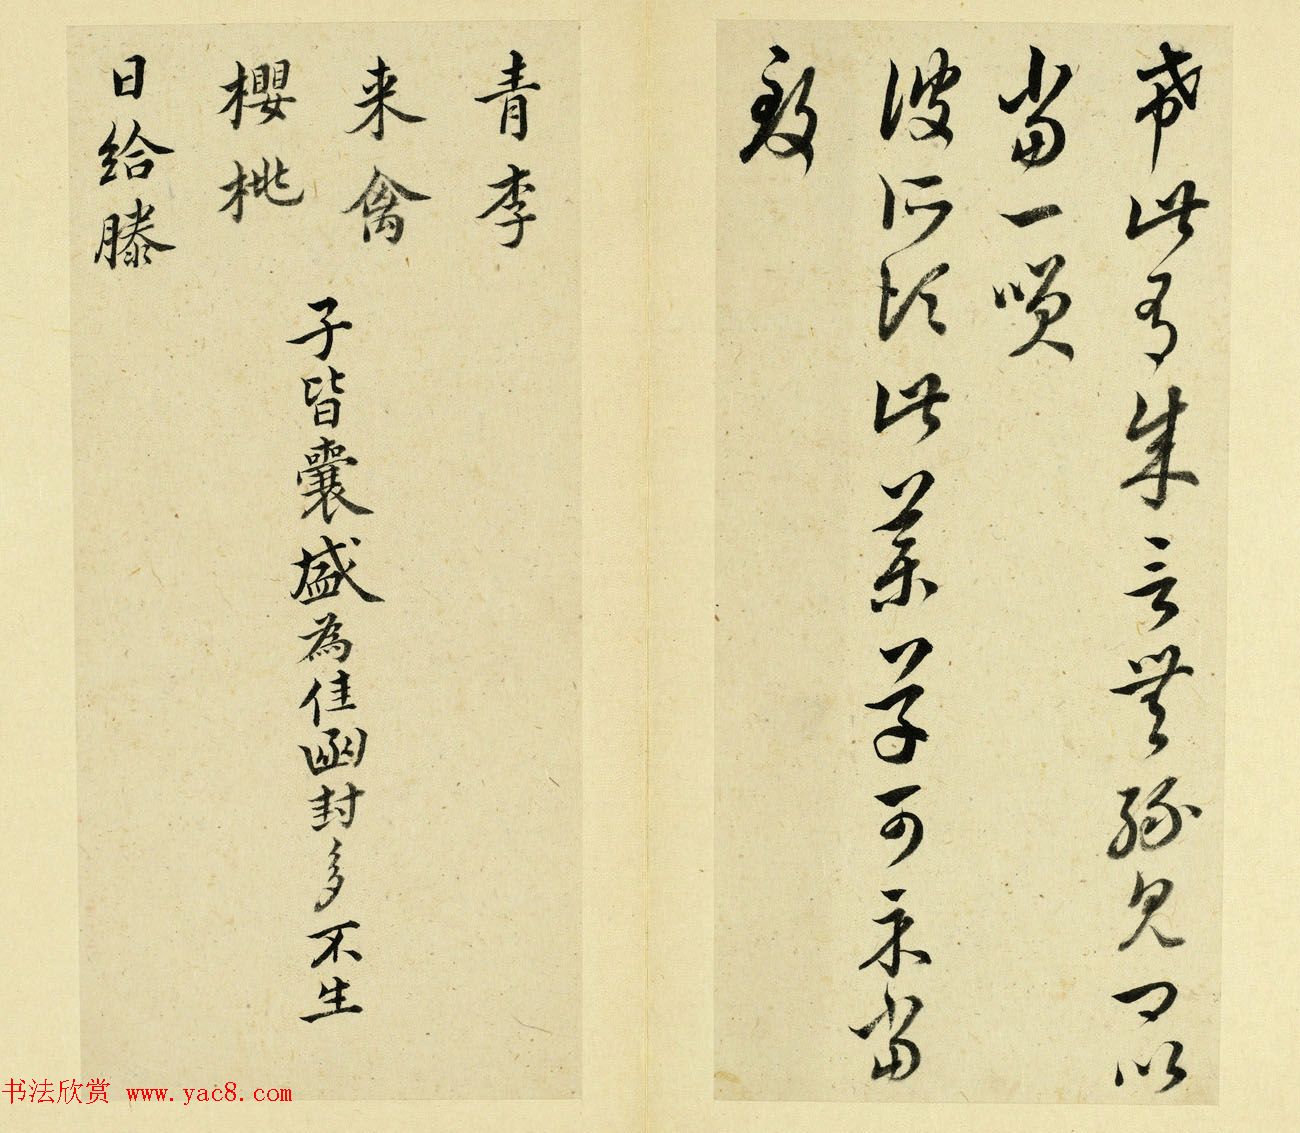 希此有成言無緣見卿以
當一咲
彼所須此藥草可示當
致
青李
来禽
櫻桃
日給滕
子皆囊盛為佳函封多不生
书法欣赏 www.yac8.com